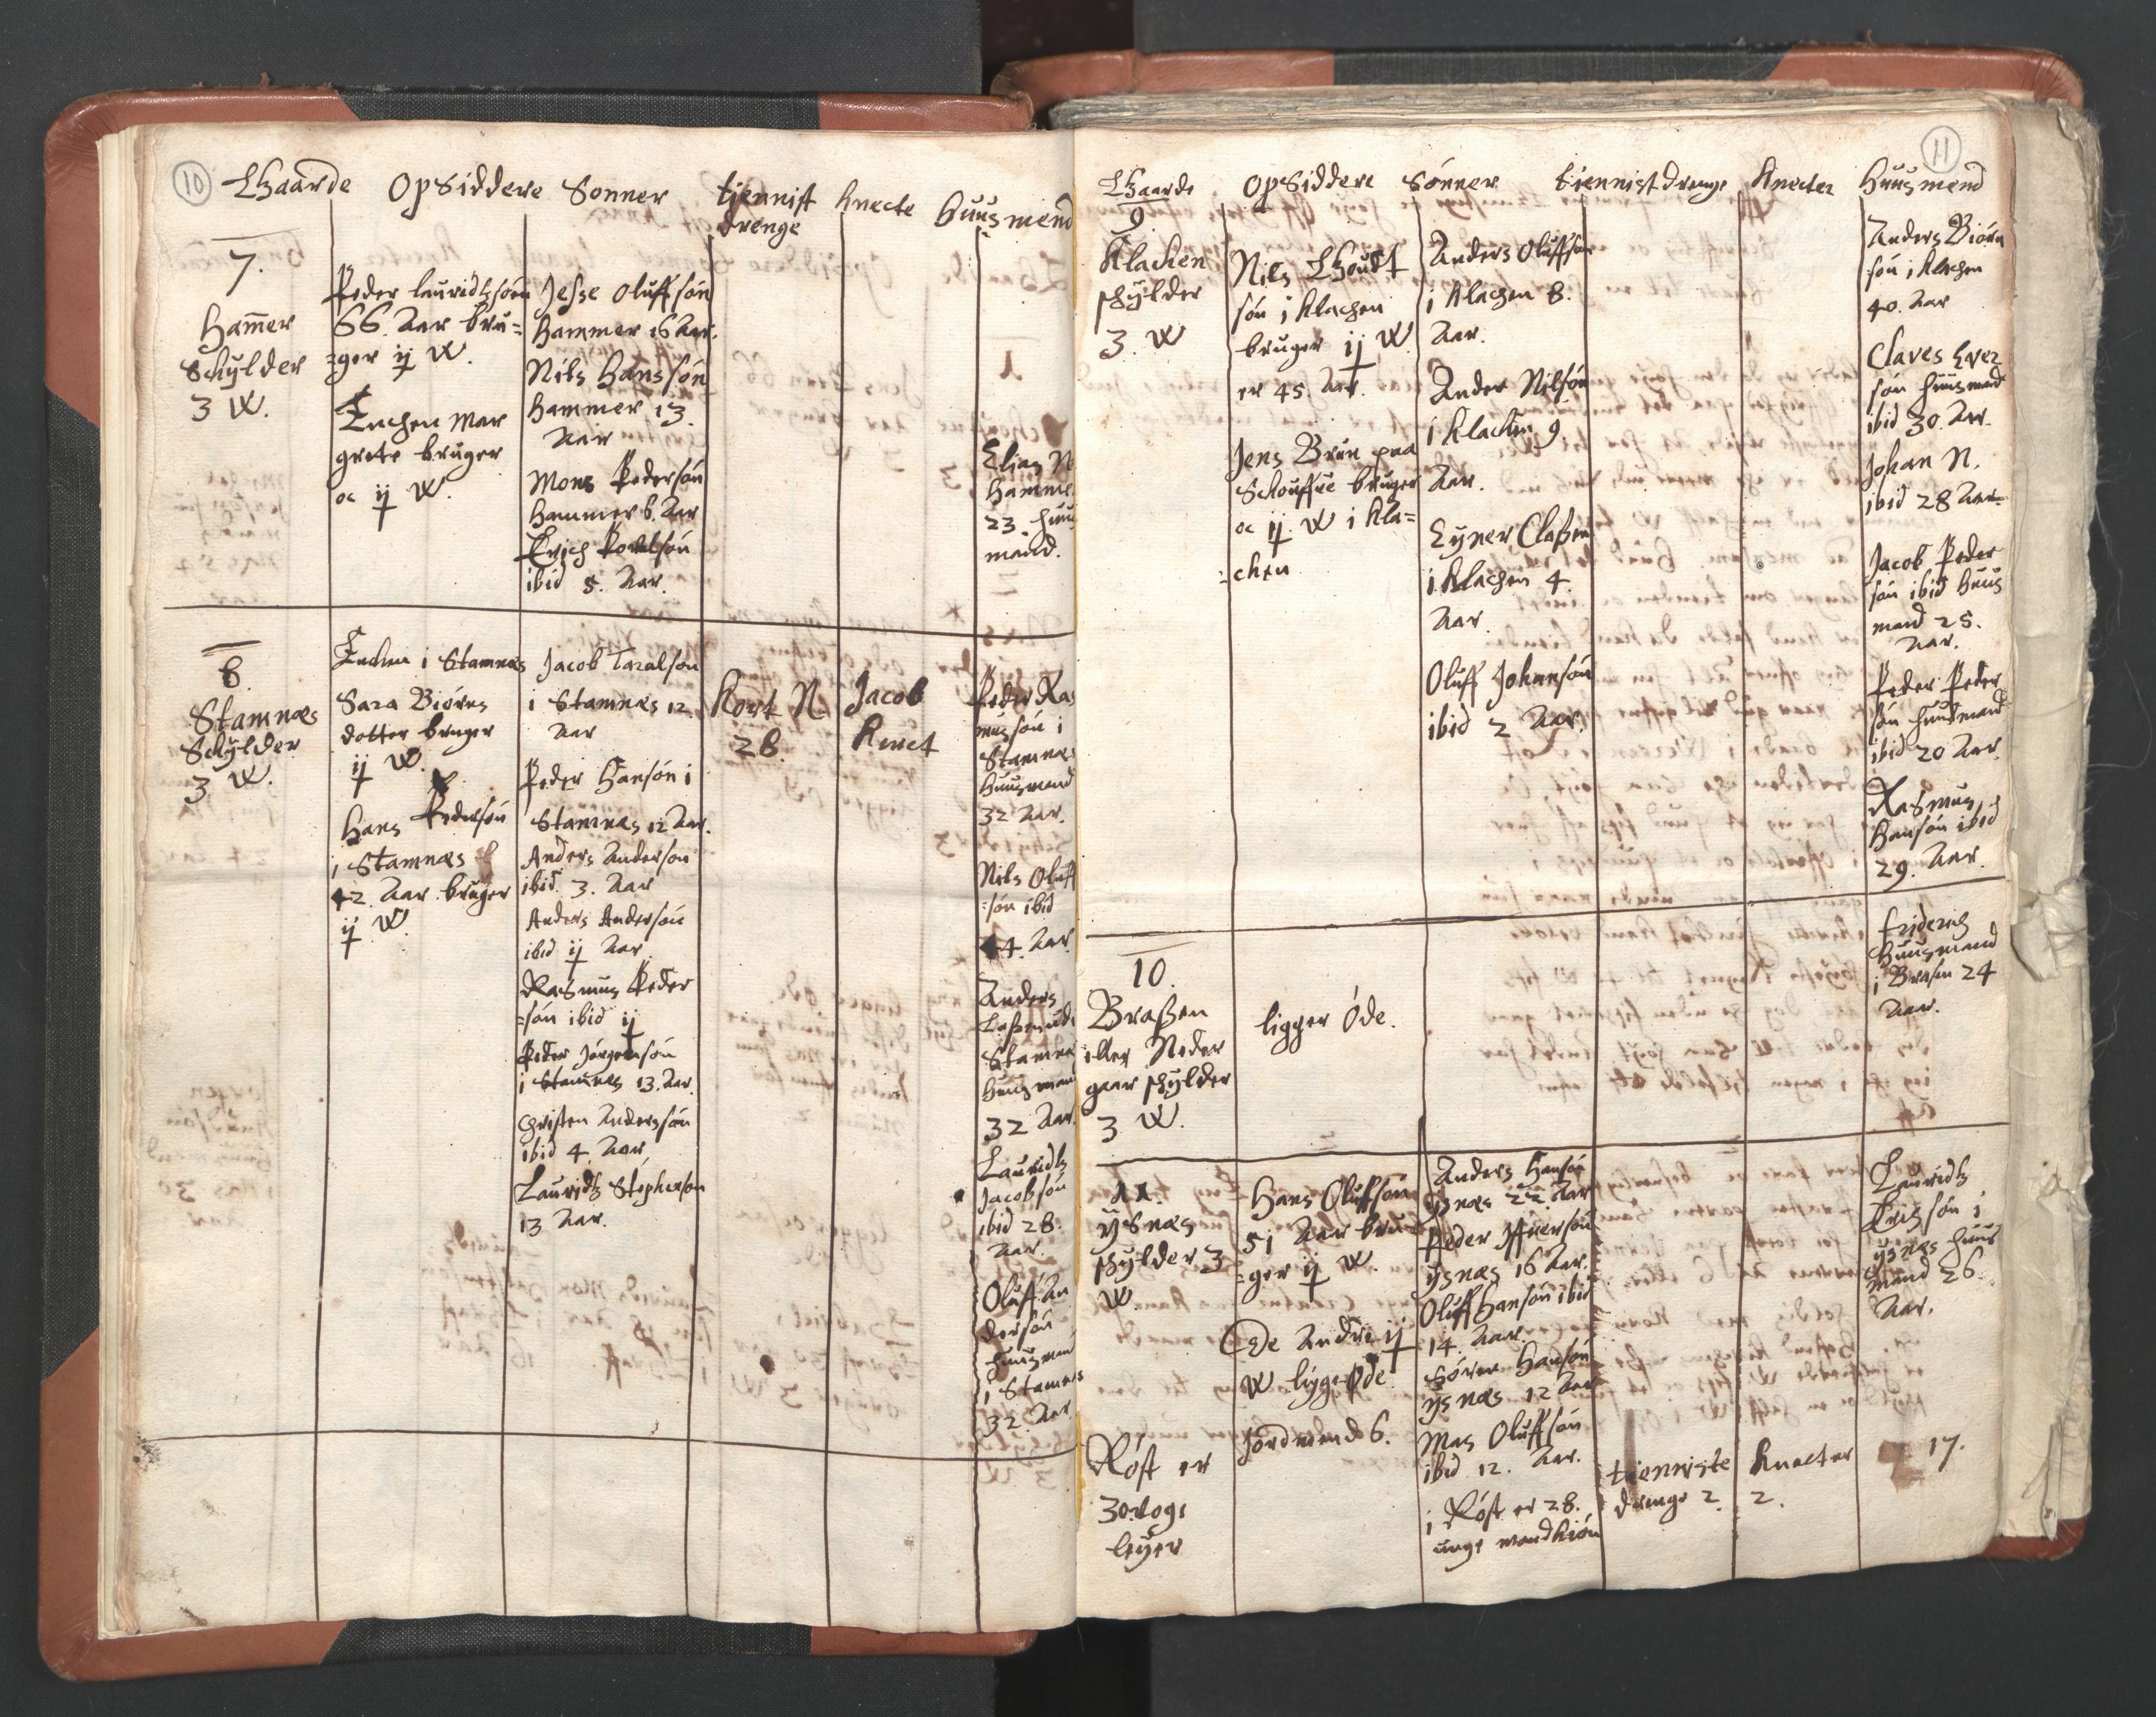 10
Gaarde Opsiddere Sonner tjennist drenge knecte huusmend
7.
Ham̄er
Schylder
3 W.
Peder lauridtzsøn
66. Aar bru=
=ger ij W.
Enchen Mar
grete bruger
oc ij W.
Jesse Oluffsøn
Hammer 16 Aar.
Nils Hanssøn
Hammer 13.
Aar
Mons Pedersøn
Hammer 6. Aar
Erich Povelsøn
ibid 5. Aar.
Elias N
Hamme
23. huus
mand.
8.
Stamnæs
Schylder
3 W.
Enchen i Stamnæs
Sara Biørns
dotter bruger
ij W.
Hans Pedersøn
i Stamnæs
42. Aar bruger
ij W.
Jacob Taralsøn
i Stamnæs 12
Aar
Peder Hansøn i
Stamnæs 12 Aar.
Anders Anderson
ibid. 3. Aar
Anders Andersøn
ibid ij Aar
Rasmus Peder
=søn ibid ij
Peder Jørgensøn
i Stamnæs 13. Aar.
Christen Anderssøn
ibid 4. Aar,
Lauridtz Stephensøn
13 Aar.
Kort N.
28.
Jacob
Knect
Peder Ras
mussøn i
Stamnæs
Huusmand
32 Aar.
Nils Oluff
=søn ibid
44. Aar.
Anders
Stamnæ
Huusmand
32 Aar.
Lauridtz
Jacobsøn
ibid 28.
Aar.
Oluff An
dersøn
huusmand
i Stamnæs
32. Aar
11
Gaarde Opsiddere Sønner tiennistdrenge Knecter Huusmend
9.
Klachen
schylder
3. W
Nils Knudt
søn i Klachen
bruger ij W.
er 45. Aar.
Jens Brun paa
Schouffue bruger
oc ij. W i Kla=
=chen
Anders Oluffsøn
i Klachen 8.
Aar.
Ander Nilsøn
i Klachen 9
Aar.
Eyner Claßen
i Klachen 4.
Aar.
Oluff Johansøn
ibid 2 Aar.
Anders Biørn
søn i Klachen
40. Aar
Claves Iver
søn huusmand
ibid 30. Aar.
Johan N.
ibid 28 Aar=
Jacob Peder
søn ibid Huus
mand 25.
Aar.
Peder Peder
søn huusmand
ibid 20 Aar.
Rasmus
Hansøn ibid
29. Aar.
10.
Braßen
eller Neder
gaar schylder
3 W.
ligger Øde.
Friderich
Huusmand
i Brasen 24
Aar.
11.
ÿsnæs
schylder 3
W
Hans Oluffsøn
51 Aar bru=
=ger ij W.
De Andre ij
W ligger øde
Anders Hansøn
ÿsnæs 22 Aar
Peder Iffuersøn
ÿsnæs 16 Aar.
Oluff Hansøn ibid
14. Aar.
Søren Hansøn
ÿsnæs 12 Aar
Mas Oluffsøn
ibid 12. Aar.
Lauridtz
Erichsøn i
ÿsnæs huus
mand 26.
Aar.
Røst er
30. voge
leÿer
Jordmend 6.
i Røst er 28.
unge mandkiøn
tienniste
drenge 2.
Knecter
2.
17.